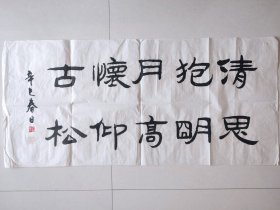 清思
抱明
月高
懷仰
古松
辛巳春日